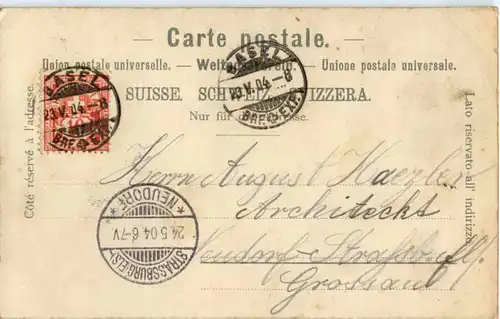 Carte postale.
Union postale universelle. — Weltpostverein. — Unione postale universale.
SUISSE. SCHWEIZ. SVIZZERA.
Nur für die Adresse.
Côté réservé à l'adresse.
Lato riservato all' indirizzo.
BASEL
23.V.04.-8
BRF.EXP.
BASEL
23.V.04.-8
BRF.EXP.
Herrn August Haezler
Architeckt
Neudorf Straßburg
Grossau
* NEUDORF *
24.5.04.6-7V.
STRASSBURG (ELS)